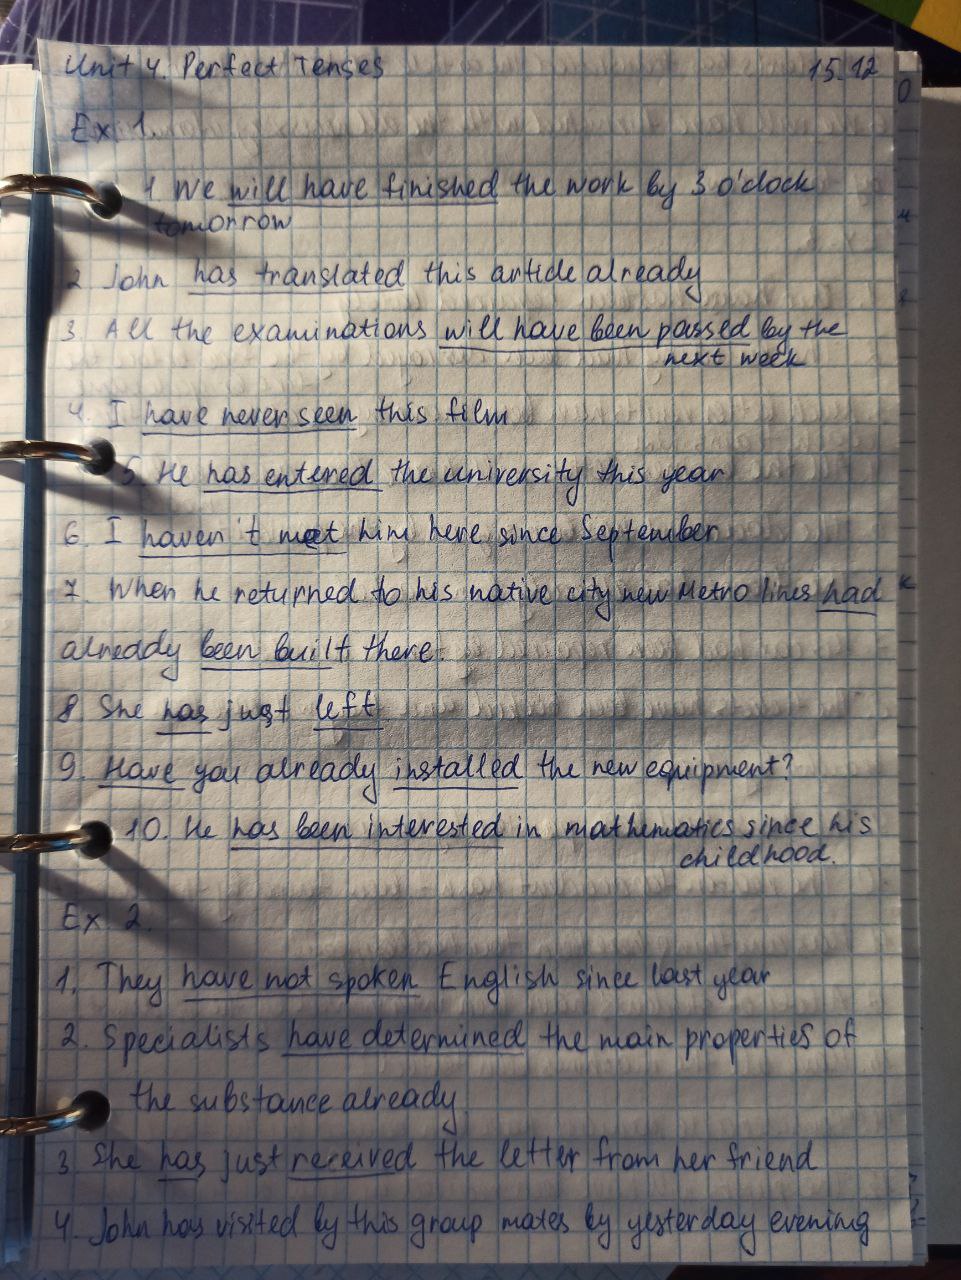 Unit 4. Perfect Tenses 15.12
Ex 1.
1 We will have finished the work by 3 o'clock
tomorrow
2 John has translated this article already
3 All the examinations will have been passed by the
next week
4. I have never seen this film
5. He has entered the university this year
6. I haven't met him here since September
7. When he returned to his native city new Metro lines had
already been built there.
8 She has just left
9. Have you already installed the new equipment?
10. He has been interested in mathematics since his
childhood.
Ex 2.
1. They have not spoken English since last year
2. Specialists have determined the main properties of
the substance already.
3 She has just received the letter from her friend
4. John has visited by this group mates by yesterday evening